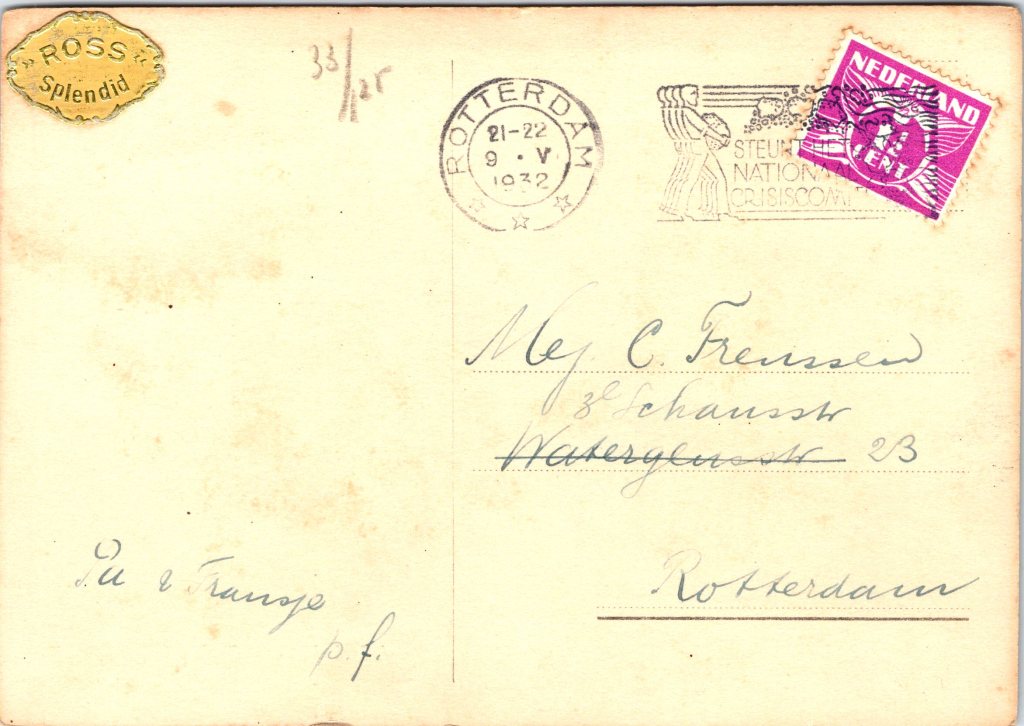 » ROSS «
Splendid
33/125
ROTTERDAM
21-22
9 · V
1932
STEUNT HE
NATIONAAL
CRISISCOMI
NEDERLAND
CENT
Mej. C. Freussen
2e Schansstr
Watergeusstr 23
Rotterdam
Pa & Fransje
p.f.